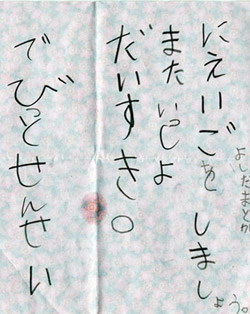 でびっとせんせい
だいすき。
またいっしょ
にえいごをしましょう。
よしだまどか